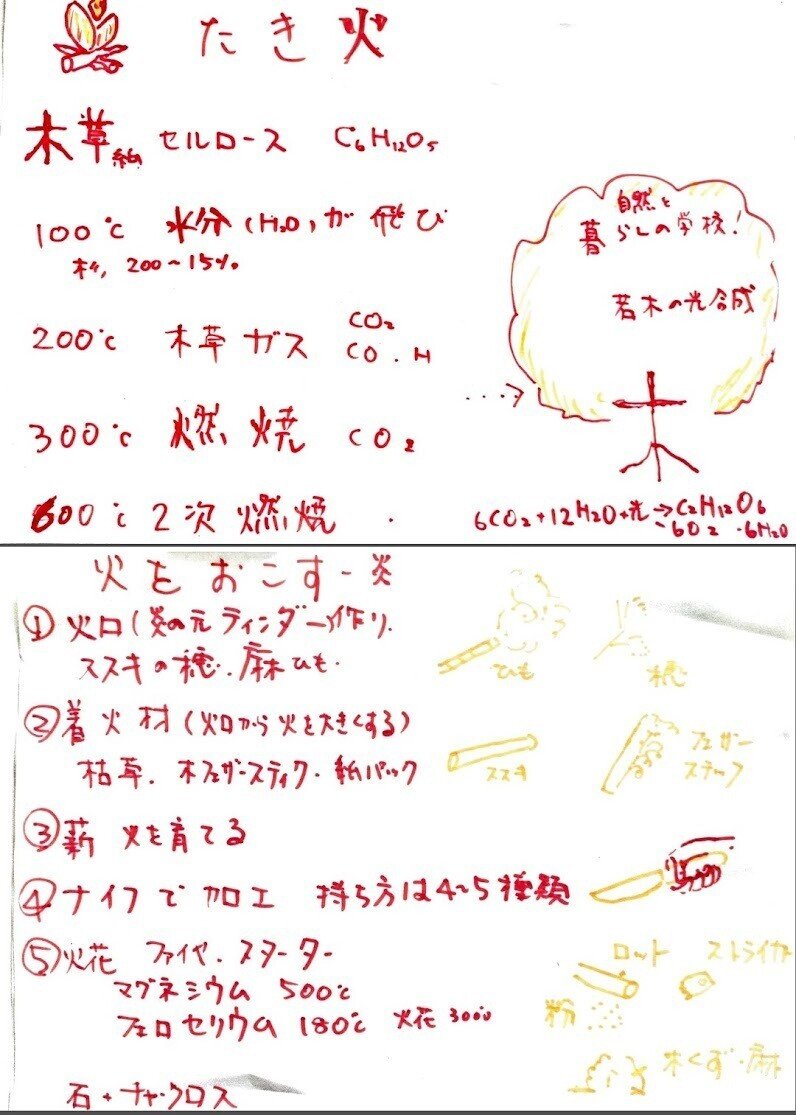 たき火
木草紙 セルロース C₆H₁₂O₅
100℃ 水分(H₂O)が飛び
木, 200〜15%
200℃ 木草ガス CO₂
CO・H
300℃ 燃焼 CO₂
600℃ 2次燃焼
自然と
暮らしの学校!
若木の光合成
6CO₂+12H₂O+光→C₂H₁₂O₆
6O₂ ・6H₂O
火をおこすー炎
① 火口(炎の元ティンダー)作り.
ススキの穂.麻ひも.
ひも 穂
② 着火材(火口から火を大きくする)
枯草.木フェザースティク.紙パック
ススキ フェザー
ステック
③ 薪 火を育てる
④ ナイフで加工 持ち方は4~5種類
⑤ 火花 ファイヤ.スターター
マグネシウム 500℃
フェロセリウム 180℃ 火花 3000
ロット ストライカ
粉
木くず・麻
石+チャークロス